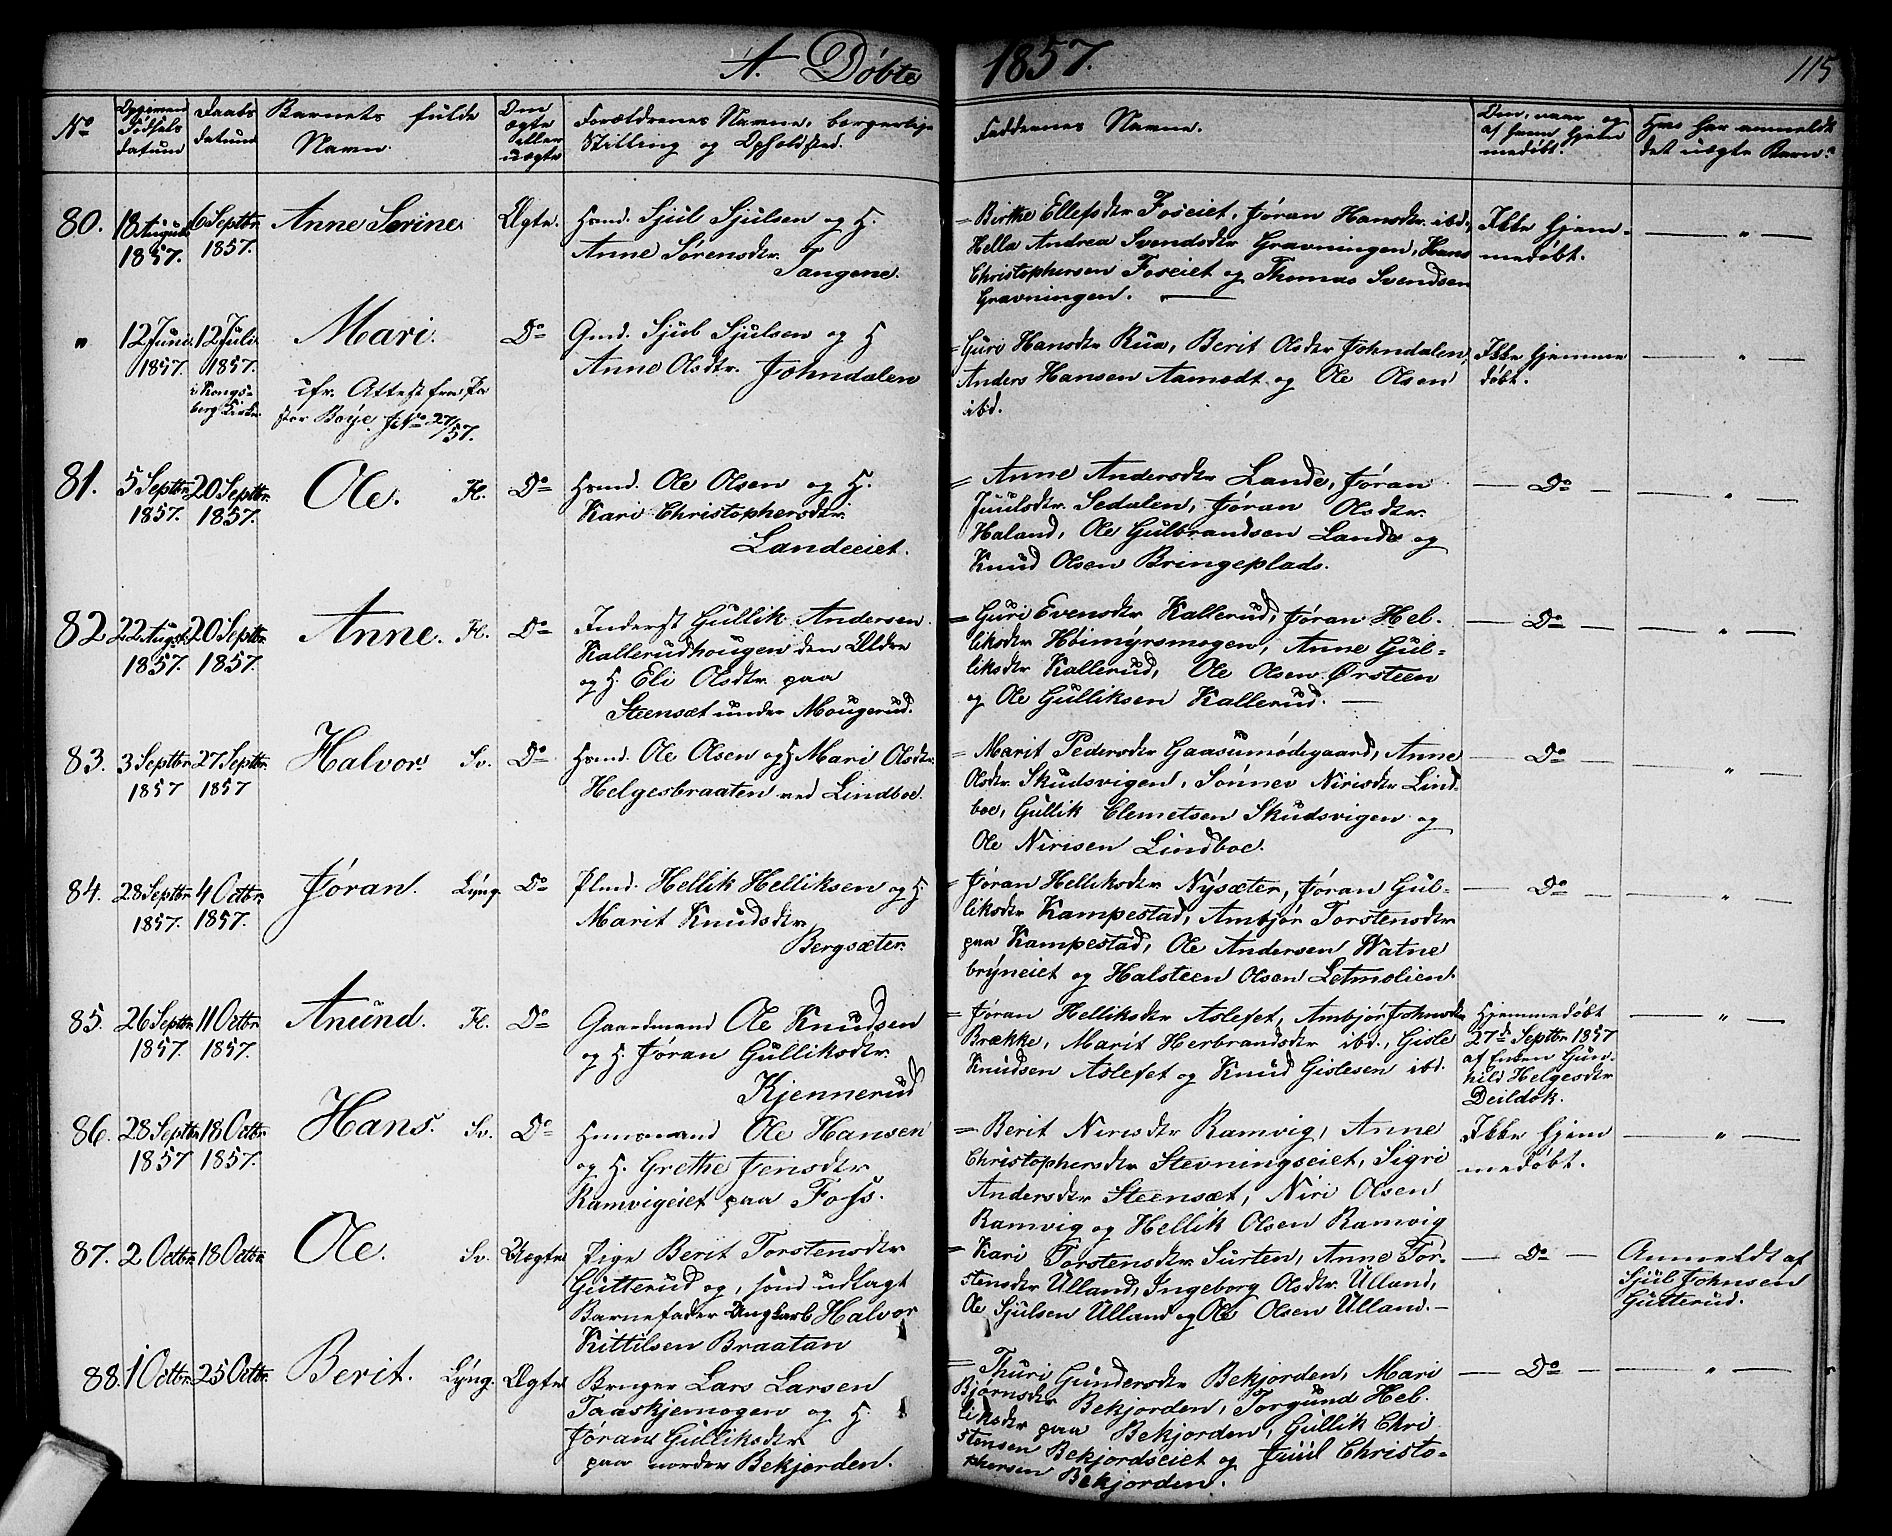 A. Døbte 1857. 115
No
Opgivend Fødsels datum
Daabs datum
Barnets fulde Navn.
Om ægte eller uægte
Forældrenes Navne, borgerlige Stilling og Opholdsted.
Faddernes Navne.
Om, naar og af hvem hjemmedøbt.
Hvo har anmeldt det uægte Barn?
80.
18 August 1857.
6 Septbr. 1857.
Anne Sørine
Ægte.
Hsmd. Sjul Sjulsen og H.
Anne Sørensdtr.
Tangene.
= Birthe Ellefsdtr Foseiet, Jøran Hansdtr. ibd.,
Hella Andrea Svendsdtr Gravningen, Hans
Christophersen Foseiet og Thomas Svendsen
Gravningen. —
Ikke hjem-
medøbt.
— " —
"
12 Juni 1857.
12 Juli 1857.
i Kongs-
berg Kirke.
Mari.
cfr. Attest fra Pa
stor Boye. J.No 27/57.
Do
Gmd. Sjul Sjulsen og H
Anne Olsdtr. Johndalen
= Guri Hansdtr Rua, Berit Olsdtr Johndalen,
Anders Hansen Aamodt og Ole Olsen
ibd.
Ikke hjemme
døbt.
— " —
81.
5 Septbr. 1857.
20 Septbr. 1857.
Ole. H.
Do
Hsmd. Ole Olsen og H.
Kari Christophersdtr.
Landeeiet.
= Anne Andersdtr Lande, Jøran
Juulsdtr. Sedalen, Jøran Olsdtr.
Haland, Ole Gulbrandsen Lande og
Knud Olsen Bringeplads.
— Do —
— " —
82
22 Augst. 1857.
20 Septbr. 1857.
Anne. H.
Do
Inderst Gullik Andersen
Kallerudhougen den Ældre
og H. Eli Olsdtr. paa
Steensæt under Mougerud.
= Guri Evensdtr Kallerud, Jøran Hel-
liksdtr Høimyrsmogen, Anne Gul-
liksdtr Kallerud, Ole Olsen Ørsteen
og Ole Gulliksen Kallerud. —
— Do —
— " —
83.
3 Septbr. 1857
27 Septbr. 1857
Halvor. Sv.
Do
Hsmd. Ole Olsen og H. Mari Olsdtr.
Helgesbraaten ved Lindboe.
= Marit Pedersdtr Gaasumødegaard, Anne
Olsdtr Skudsvigen, Sønnev Nirisdtr Lind-
boe, Gullik Clemetsen Skudsvigen og
Ole Nirisen Lindboe.
— Do —
— " —
84.
28 Septbr. 1857.
4 Octbr. 1857.
Jøran. Lyng.
Do
Plmd. Hellik Helliksen og H
Marit Knudsdtr.
Bergsæter.
= Jøran Helliksdtr. Nysæter, Jøran Gul-
liksdtr Kampestad, Ambjør Torstensdtr
paa Kampestad, Ole Andersen Watne
bryneiet og Halsteen Olsen Letmolien.
— Do —
— " —
85.
26 Septbr. 1857.
11 Octbr. 1857.
Anund. H.
Do
Gaardmand Ole Knudsen
og H. Jøran Gulliksdtr.
Kjennerud
= Jøran Helliksdtr Aslefet, Ambjør Johnsdtr
Brække, Marit Herbrandsdtr ibd., Gisle
Knudsen Aslefet og Knud Gislesen ibd.
Hjemmedøbt
27de Septbr. 1857
af Enken Gun-
hild Helgesdtr
Deildok.
— " —
86.
28 Septbr. 1857
18 Octbr. 1857.
Hans. Sv.
Do
Huusmand Ole Hansen
og H. Grethe Jensdtr
Ramvigeiet paa Foss.
= Berit Nirisdtr Ramvig, Anne
Christophersdtr Stevningseiet, Sigri
Andersdtr Steensæt, Niri Olsen
Ramvig og Hellik Olsen Ramvig
Ikke hjem
medøbt.
— " —
87.
2 Octbr.
18 Octbr.
Ole. Sv.
Uægte
Pige Berit Torstensdtr
Gutterud og, som udlagt
Barnefader Ungkarl Halvor
Kittilsen Braatan
= Kari Torstensdtr Surten, Anne Tor-
stensdtr Ulland, Ingeborg Olsdtr. Ulland,
Ole Sjulsen Ulland og Ole Olsen Ulland. —
— Do —
Anmeldt af
Sjul Johnsen
Gutterud.
88.
1 Octbr.
25 Octbr.
Berit. Lyng.
Ægte
Bruger Lars Larsen
Taaskjemogen og H.
Jøran Gulliksdtr
paa nordre Bekjorden.
= Thuri Gundersdtr Bekjorden, Mari
Bjørnsdtr Bekjorden, Torgund Hel-
liksdtr paa Bekjorden, Gullik Chri
stensen Bekjordseiet og Juul Christo-
phersen Bekjorden.
— Do —
— " —